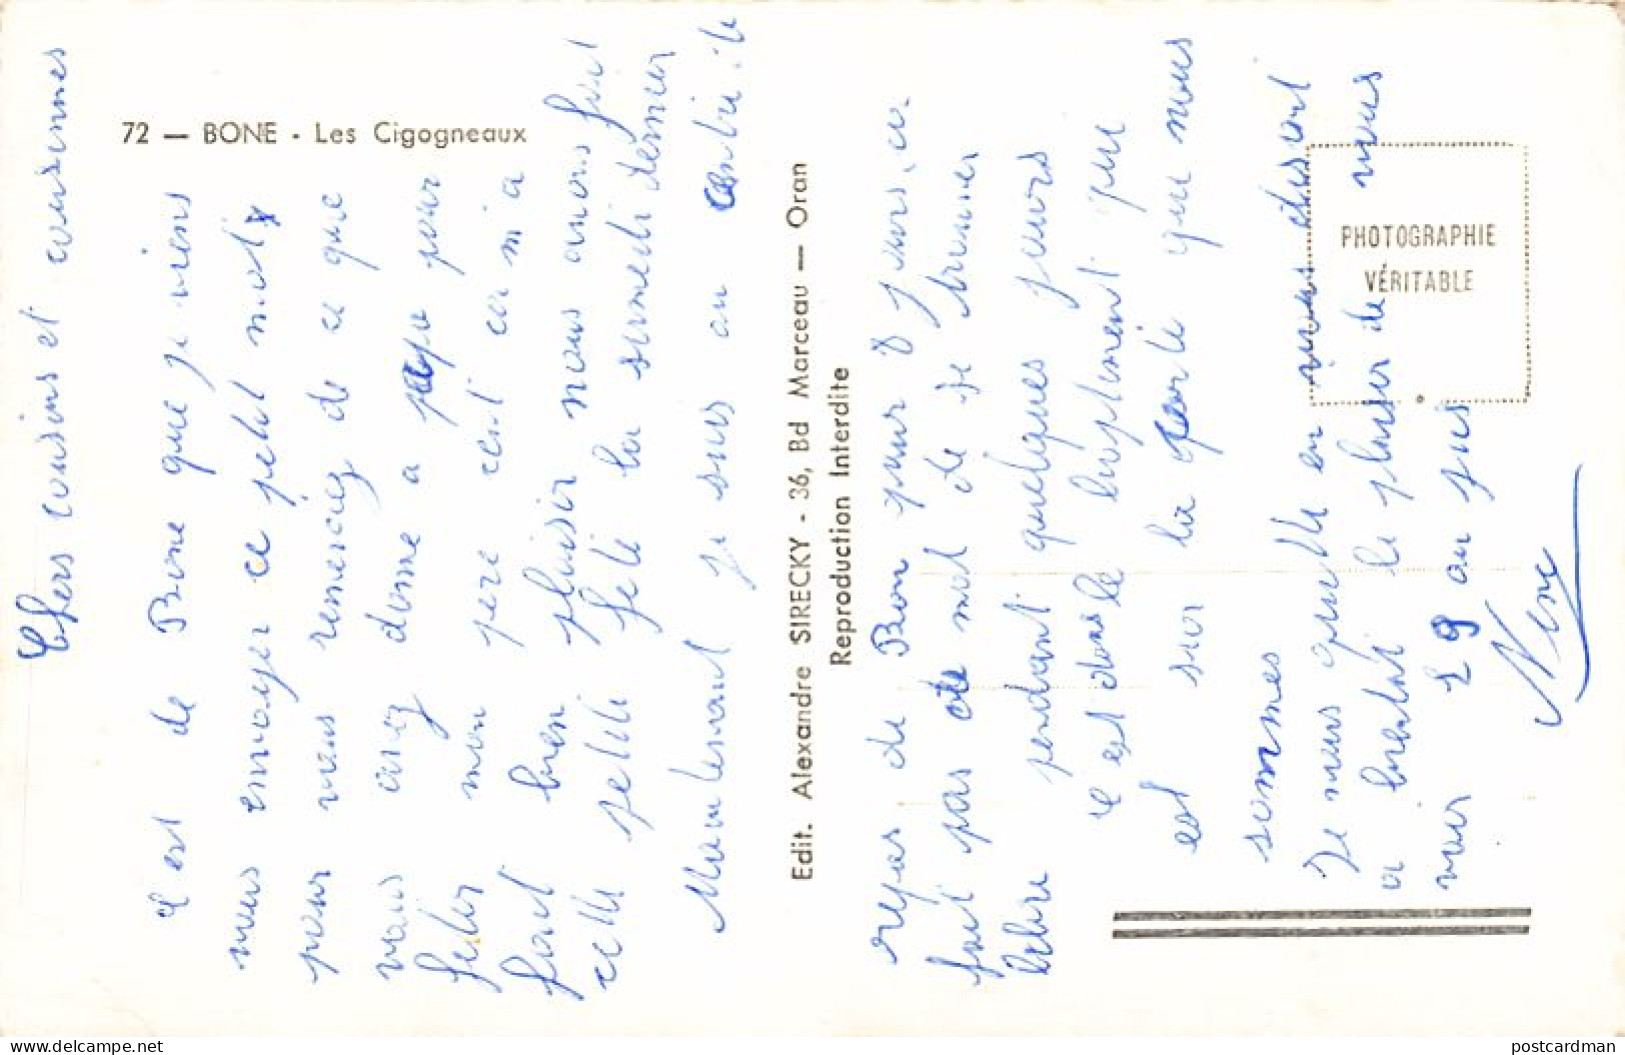 72 — BONE - Les Cigogneaux
Chers cousins et cousinnes
C est de Bone que je viens
vous envoyer ce petit mot
pour vous remerciez de ce que
vous avez donne a papa pour
feter mon pere cent ca m a
fait bien plaisir nous avons fait
cette petite fete la samedi dernier
Maintenant je suis au
repos de Bon pour 8 jours, ca
fait pas de mal de se
pendant quelques jours
C est dans le que
est sur la que nous
sommes
Je vous quitte en vous disant
a bientot le plaisir de vous
voir
Edit. Alexandre SIRECKY - 36, Bd Marceau — Oran
Reproduction Interdite
PHOTOGRAPHIE
VÉRITABLE
delcampe.net
postcardman